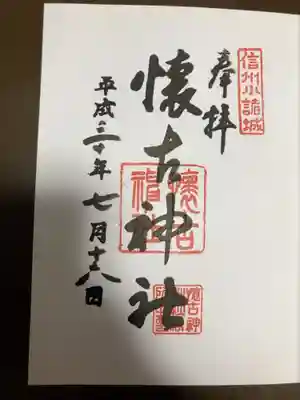 信州小諸城
奉拝
懐古神社
懐古神社
平成三十年七月十八日